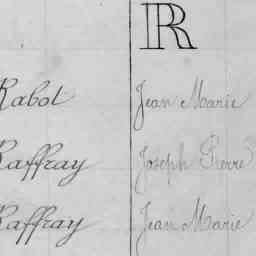 R
Rabot Jean Marie
Raffray Joseph Pierre
Raffray Jean Marie